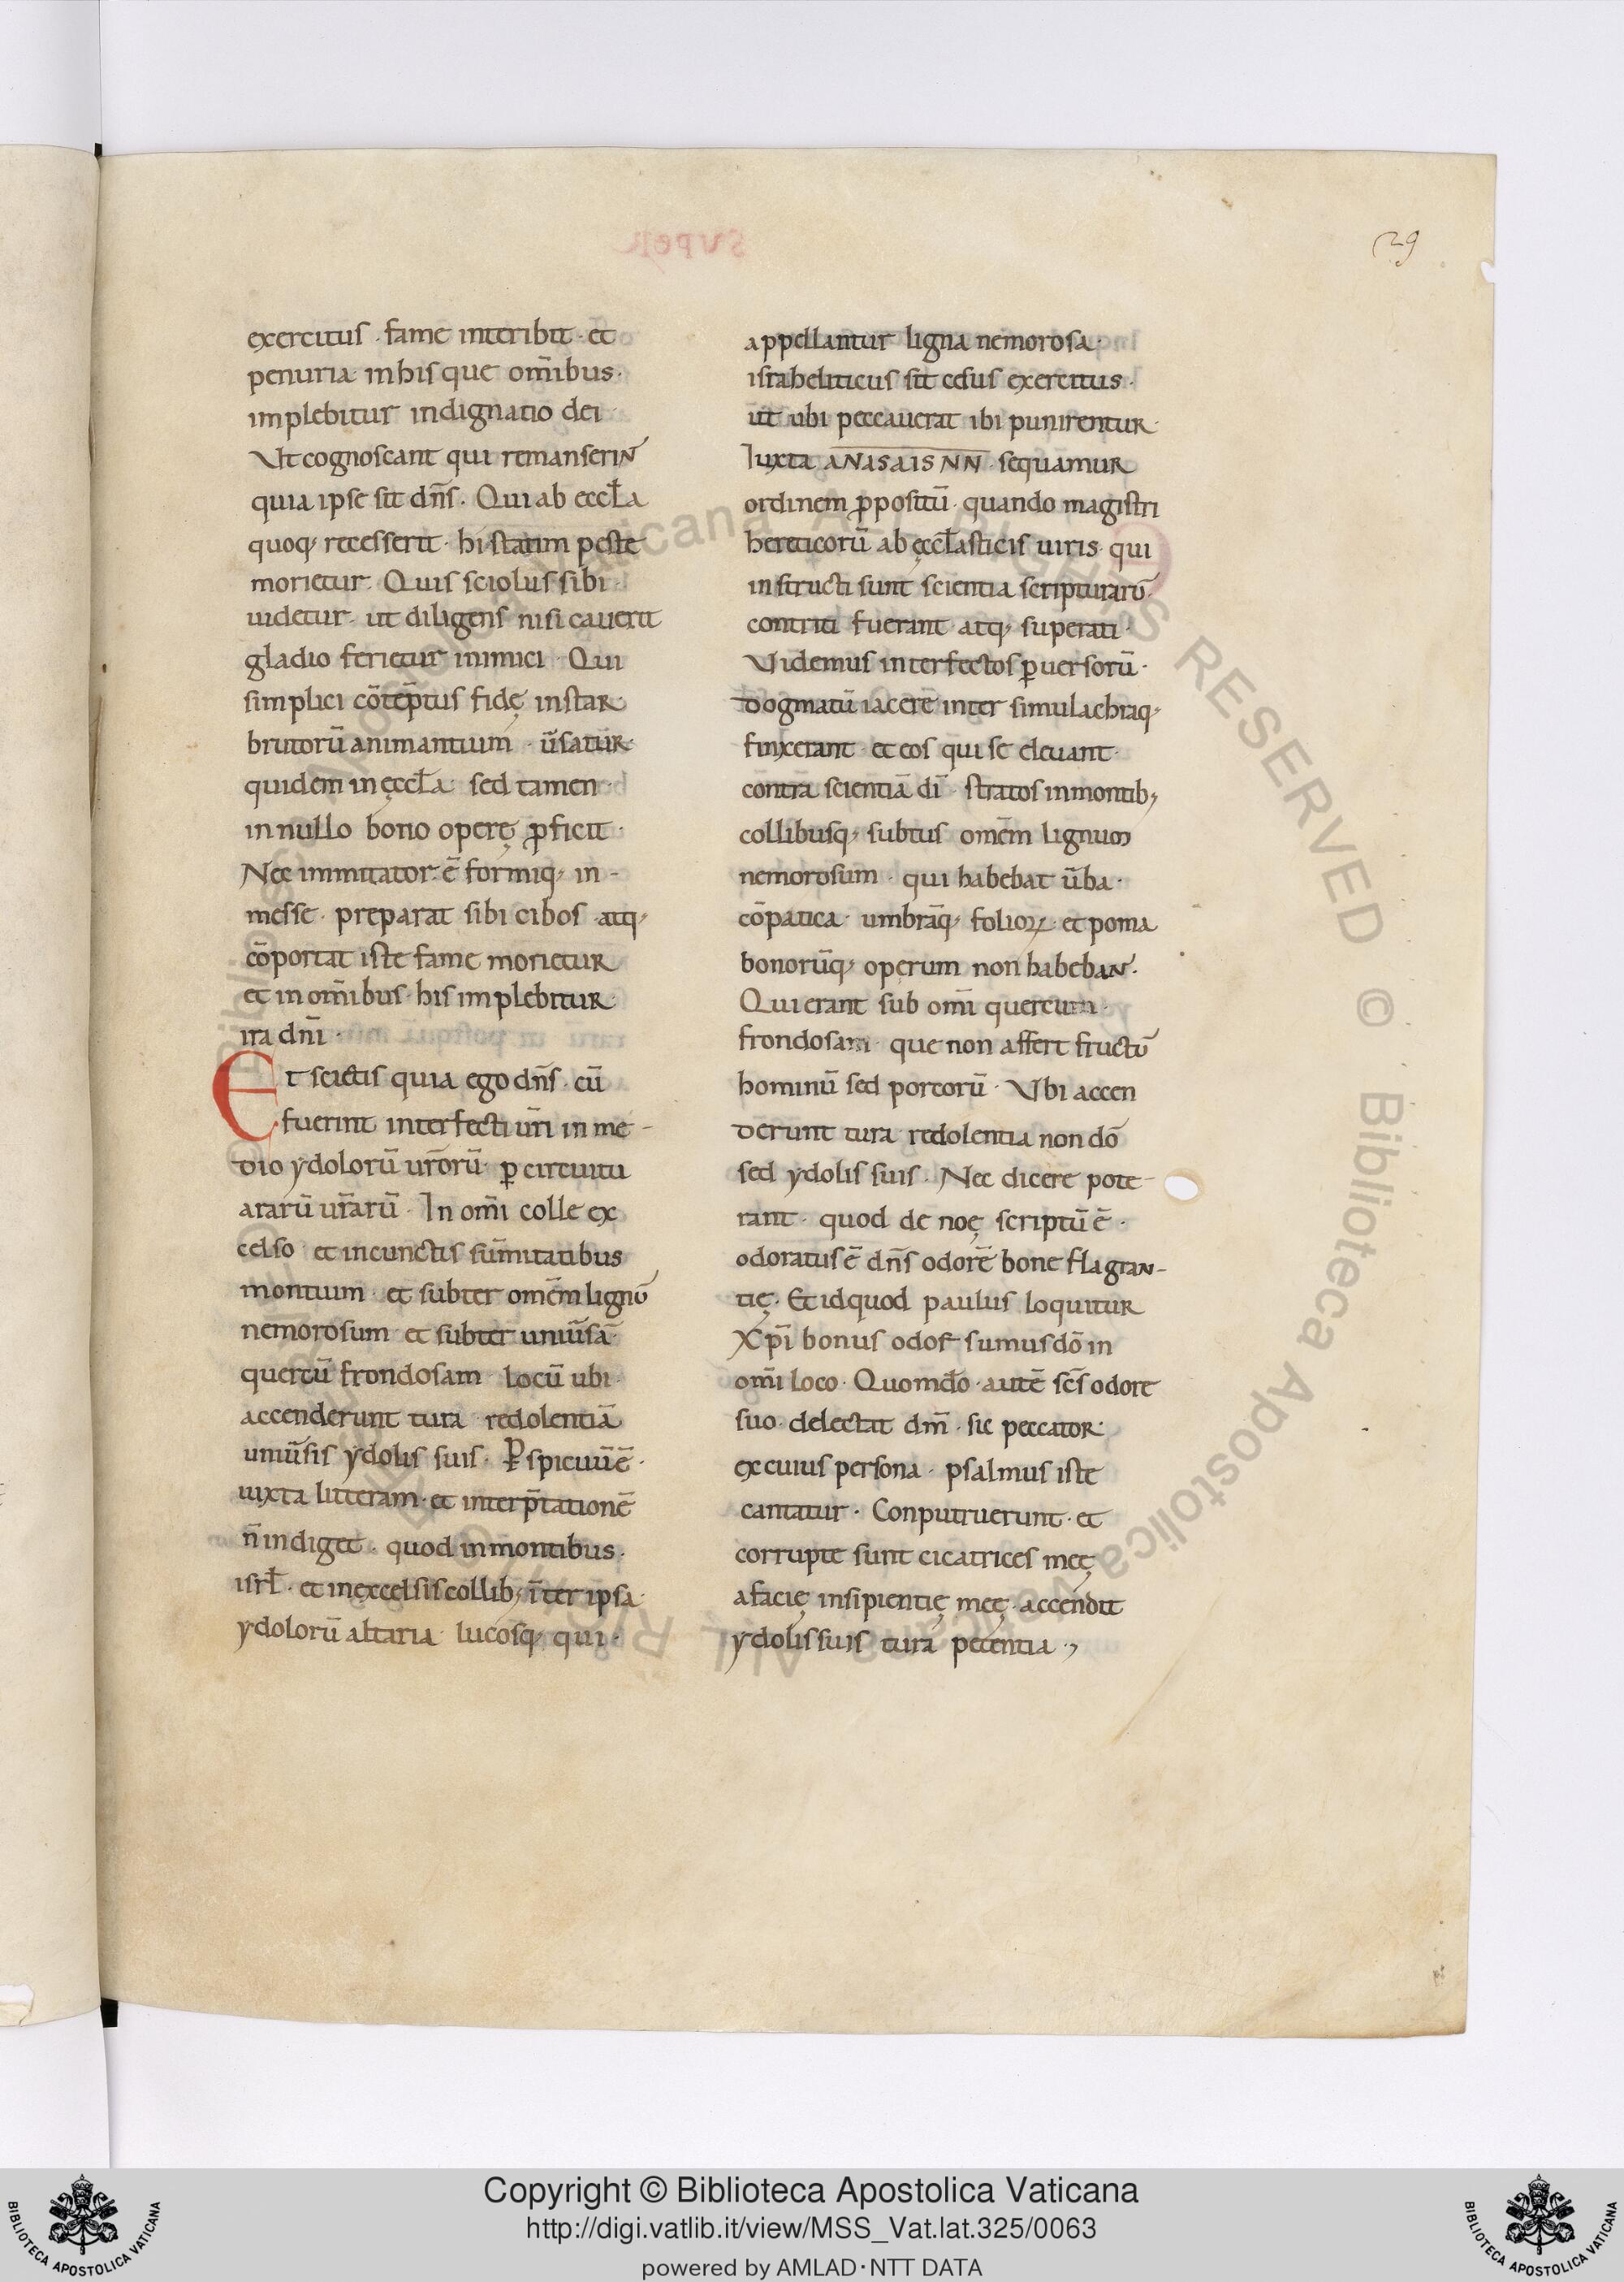 29
exercitus · fame interibit · et
penuria · in his que om̄ibus ·
implebitur indignatio dei ·
Vt cognoscant qui remanserint
quia ipse sit dn̄s · Qui ab eccl̄a
quoq; recesserit · hi statim peste
morietur · Quis sciolus sibi
uidetur · ut diligens nisi cauerit
gladio ferietur inimici · Qui
simplici cōtēptus fidę instar
brutorū animantium · ūsatur
quidem in ęccl̄a · sed tamen
in nullo bono operę ꝓficit ·
Nec immitator ē formiq; in-
messe · preparat sibi cibos atq;
cōportat iste fame morietur
et in om̄ibus his implebitur
ira dn̄i ·
Et scietis quia ego dn̄s · cū
fuerint interfecti ur̄i in me-
dio ydolorū ur̄orū · ꝑ circuitu
ararū ur̄arū · In om̄i colle ex
celso · et in cunctis sūmitatibus
montium · et subter omēm lignū
nemorosum · et subter uniūsā
quercū frondosam · locū ubi
accenderunt tura · redolentiā
uniūsis ydolis suis · Ꝑspicuū ē ·
iuxta litteram · et interp̄tationē
n̄ indiget · quod in montibus ·
isrl̄ · et in excelsis collib; īter ipsa
ydolorū altaria · lucosq; qui ·
appellantur ligna nemorosa ·
israheliticus sit cesus exercitus ·
ut ubi peccauerat ibi punirentur
Iuxta ANASAISNN · sequamur
ordinem ꝓpositū · quando magistri
hereticorū ab ęccl̄asticis uiris · qui
instructi sunt scientia scripturarū ·
contriti fuerant atq; superati ·
Videmus interfectos ꝑuersorū ·
dogmatū iacere inter simulachraq;
finxerant · et eos qui se eleuant ·
contra scientiā dī · stratos in montib;
collibusq; subtus omēm lignum
nemorosum · qui habebat ūba ·
cōpatica · umbrāq; folioꝝ · et poma
bonorūq; operum non habebant ·
Qui erant sub om̄i quercum ·
frondosam · que non affert fructū
hominū sed porcorū · Vbi accen
derunt tura redolentia non dō
sed ydolis suis · Nec dicere pote-
rant · quod de noę scriptū ē ·
odoratus ē dn̄s odorē bone flagran-
tię · Et id quod paulus loquitur
Xp̄i bonus odor sumus dō in
om̄i loco · Quomd̄o · autē sc̄s odore
suo · delectat dm̄ · sic peccator
ex cuius persona · psalmus iste
cantatur · Conputruerunt · et
corrupte sunt cicatrices meę
a facię insipientię meę · accendit
ydolis suis tura petentia ·,
Copyright © Biblioteca Apostolica Vaticana
http://digi.vatlib.it/view/MSS_Vat.lat.325/0063
powered by AMLAD·NTT DATA